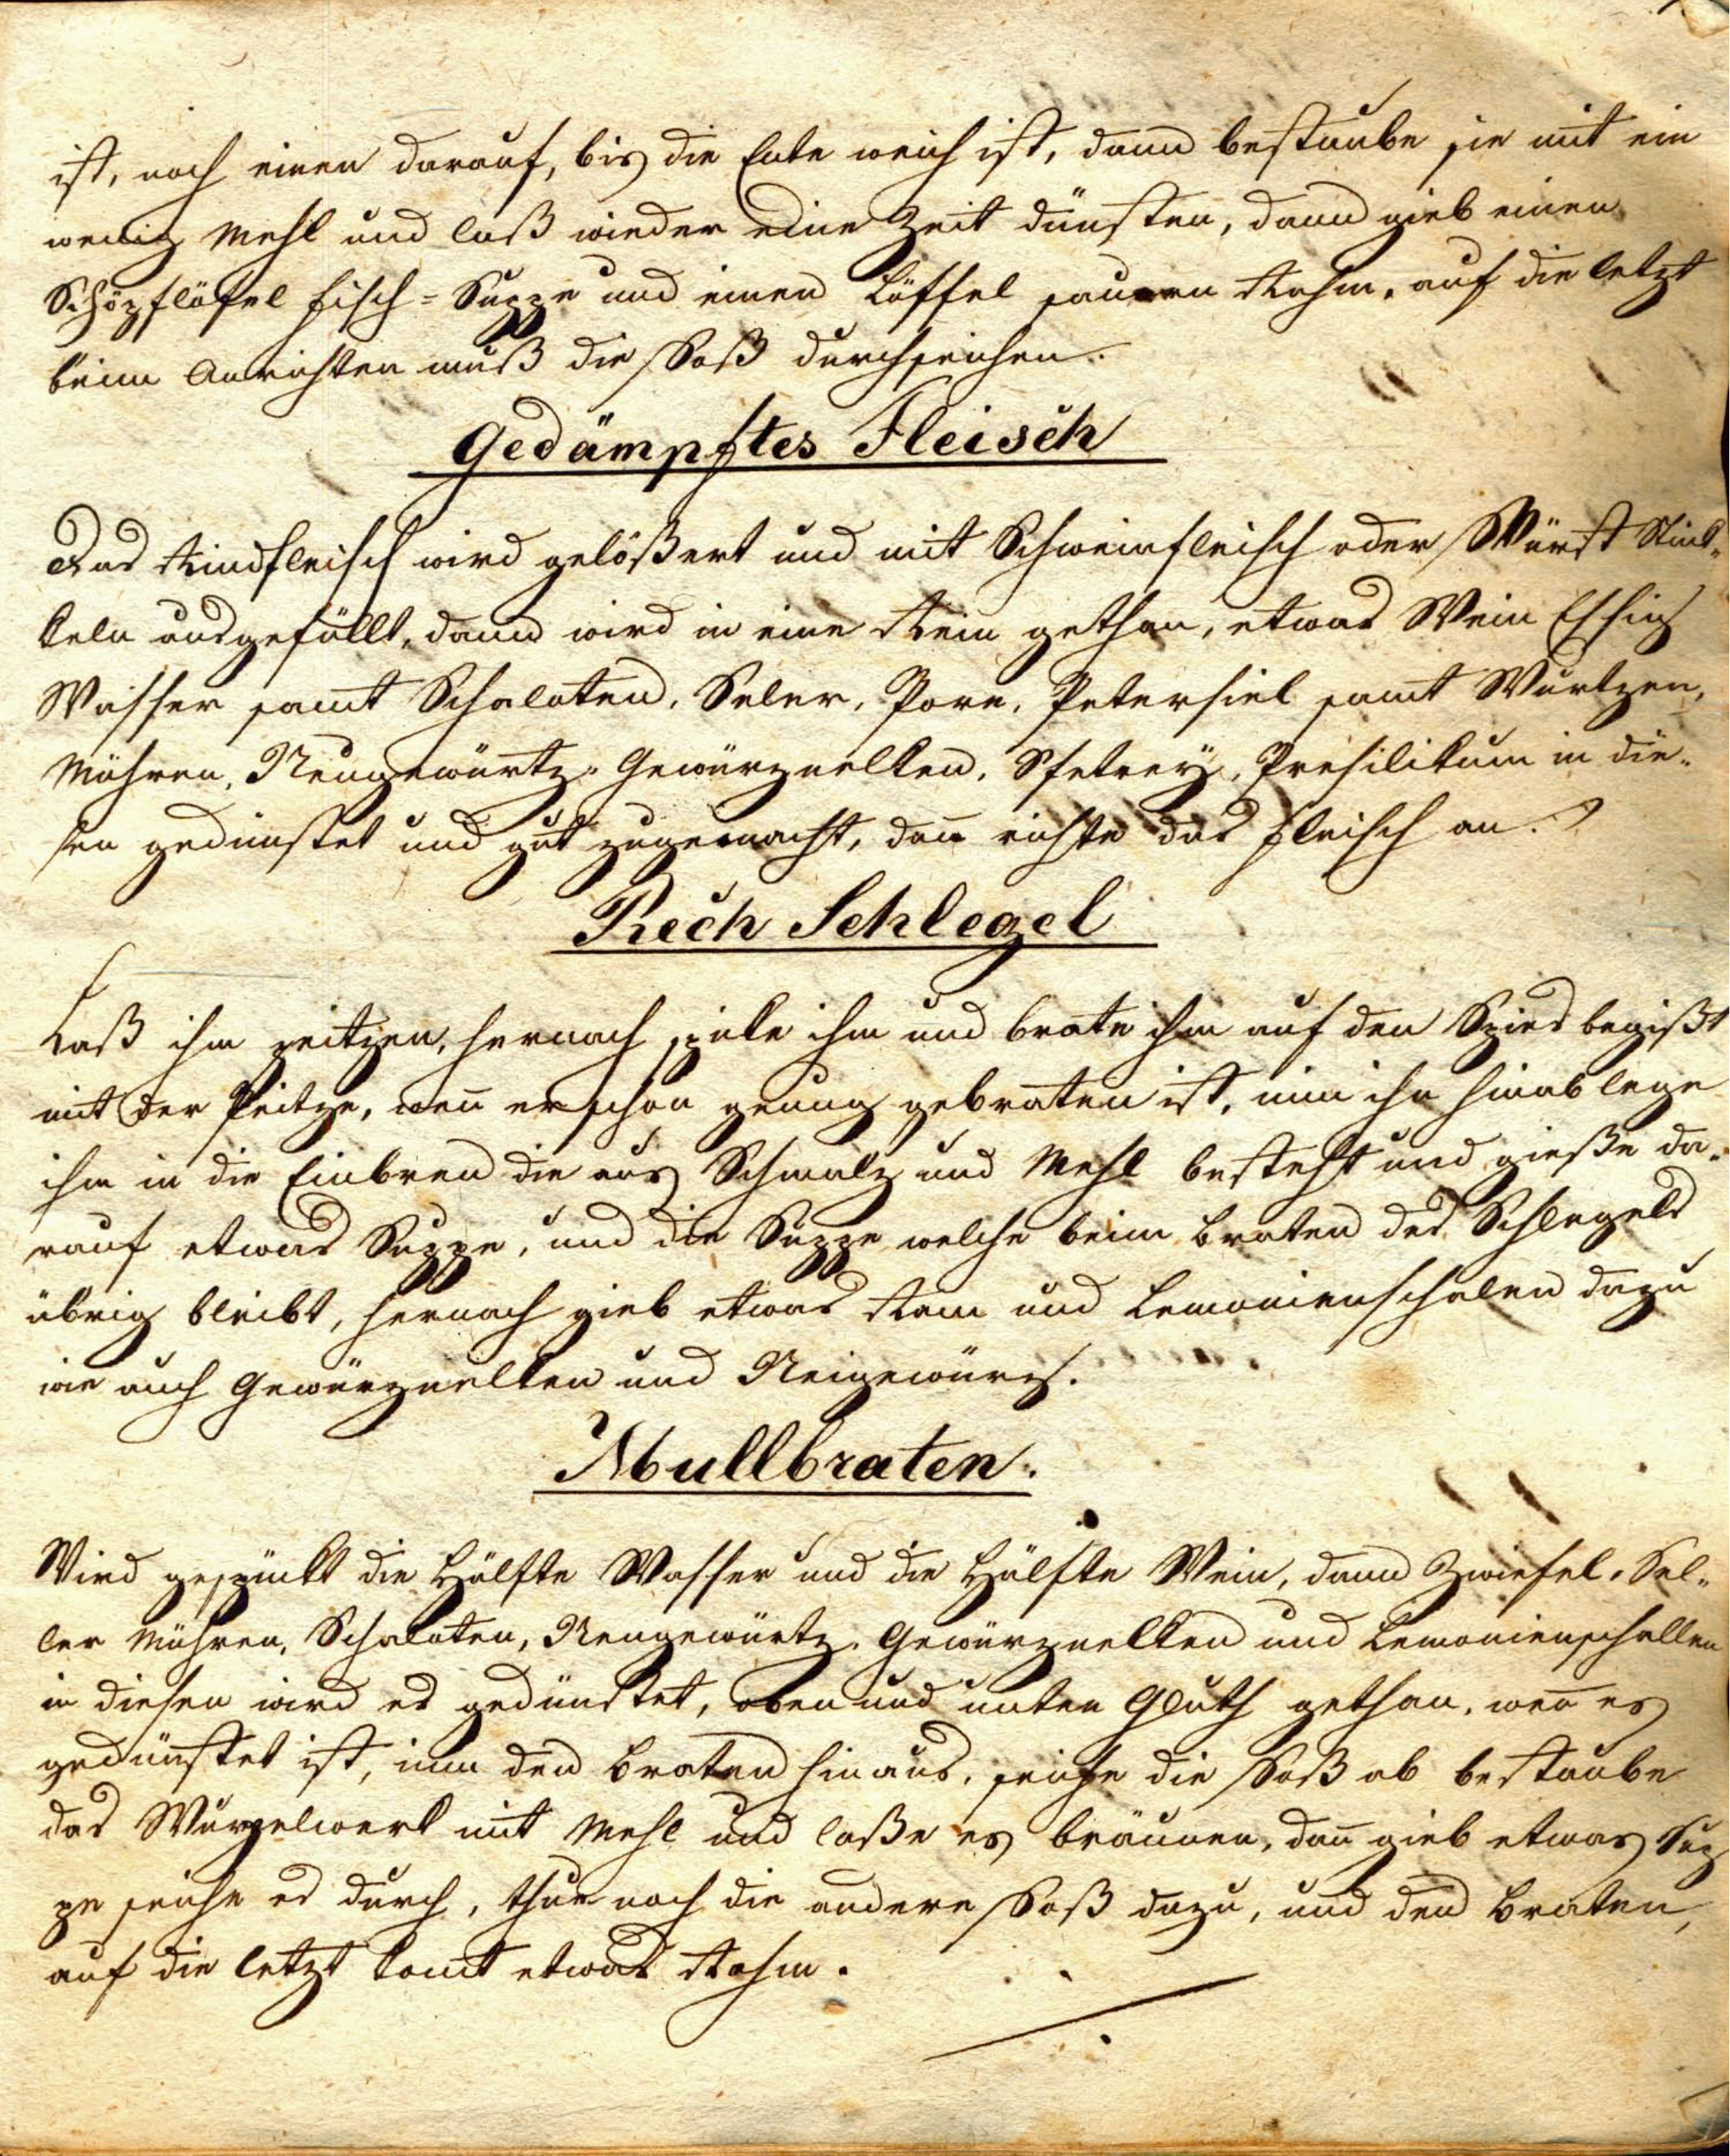 ist, noch einen darauf, bis die Ente weich ist, dann bestaube sie mit ein
wenig Mehl und laß wieder eine Zeit dünsten, dann gieb einen
Schöpflöfel Fisch-Suppe und einen Löffel sauren Rahm, auf die letzt
beim Anrichten muß die Soß durchseichen.
Gedämpftes Fleisch
Das Rindfleisch wird gelößert und mit Schweinfleisch oder Würst Stück-
keln ausgefüllt, dann wird in eine Rein gethan, etwas Wein Essig
Wasser samt Schaloten, Seler, Pore, Petersiel samt Wurtzen,
Möhren, Neugewürtz, Gewürznelken, Presilikum in die-
sen gedünstet und gut zugemacht, dan̄ richte das Fleisch an.
Rech Schlegel
Laß ihm peitzen, hernach spike ihm und brate ihm auf den Spies begißt
mit der Peitze, wen̄ er schon genug gebraten ist, nim ihn hinab lege
ihm in die Einbren die aus Schmalz und Mehl besteht und gieße da-
rauf etwas Suppe, und die Suppe welche beim Braten des Schlegels
übrig bleibt, hernach gieb etwas Ram und Lemonienschalen dazu
wie auch Gewürznelken und Neigewürz.
Mullbraten.
Wird gespückt die Hälfte Wasser und die Hälfte Wein, dann Zwiefel, Sel-
ler Möhren, Schaloten, Neugewürtz, Gewürznelken und Lemonienschallen
in diesen wird es gedünstet, oben und unten Gluth gethan, wen̄ es
gedünstet ist, nim den Braten hinaus, seiche die Soß ab bestaube
das Wurzelwerk mit Mehl und laße es bräunen, dan̄ gieb etwas Sup
pe seiche es durch, thue noch die andere Soß dazu, und den Braten,
auf die letzt komt etwas Rahm.